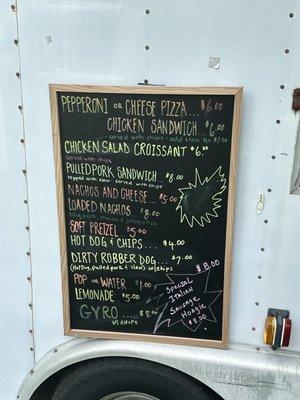 PEPPERONI OR CHEESE PIZZA... $6.00
CHICKEN SANDWICH... $6.00
served with chips - add slaw for $1.00
CHICKEN SALAD CROISSANT $6.00
served with chips
PULLED PORK SANDWICH... $8.00
topped with slaw served with chips
NACHOS AND CHEESE... $5.00
LOADED NACHOS... $8.00
bbq pork, cheese & jalapenos
SOFT PRETZEL $5.00
HOT DOG & CHIPS... $4.00
DIRTY ROBBER DOG... $7.00
(Hot Dog, pulled pork & slaw) w/chips
POP OR WATER $1.00
LEMONADE $5.00
GYRO... $8.00
W/ CHIPS
$8.00
Special
Italian
Sausage
Hoagie
$8.00